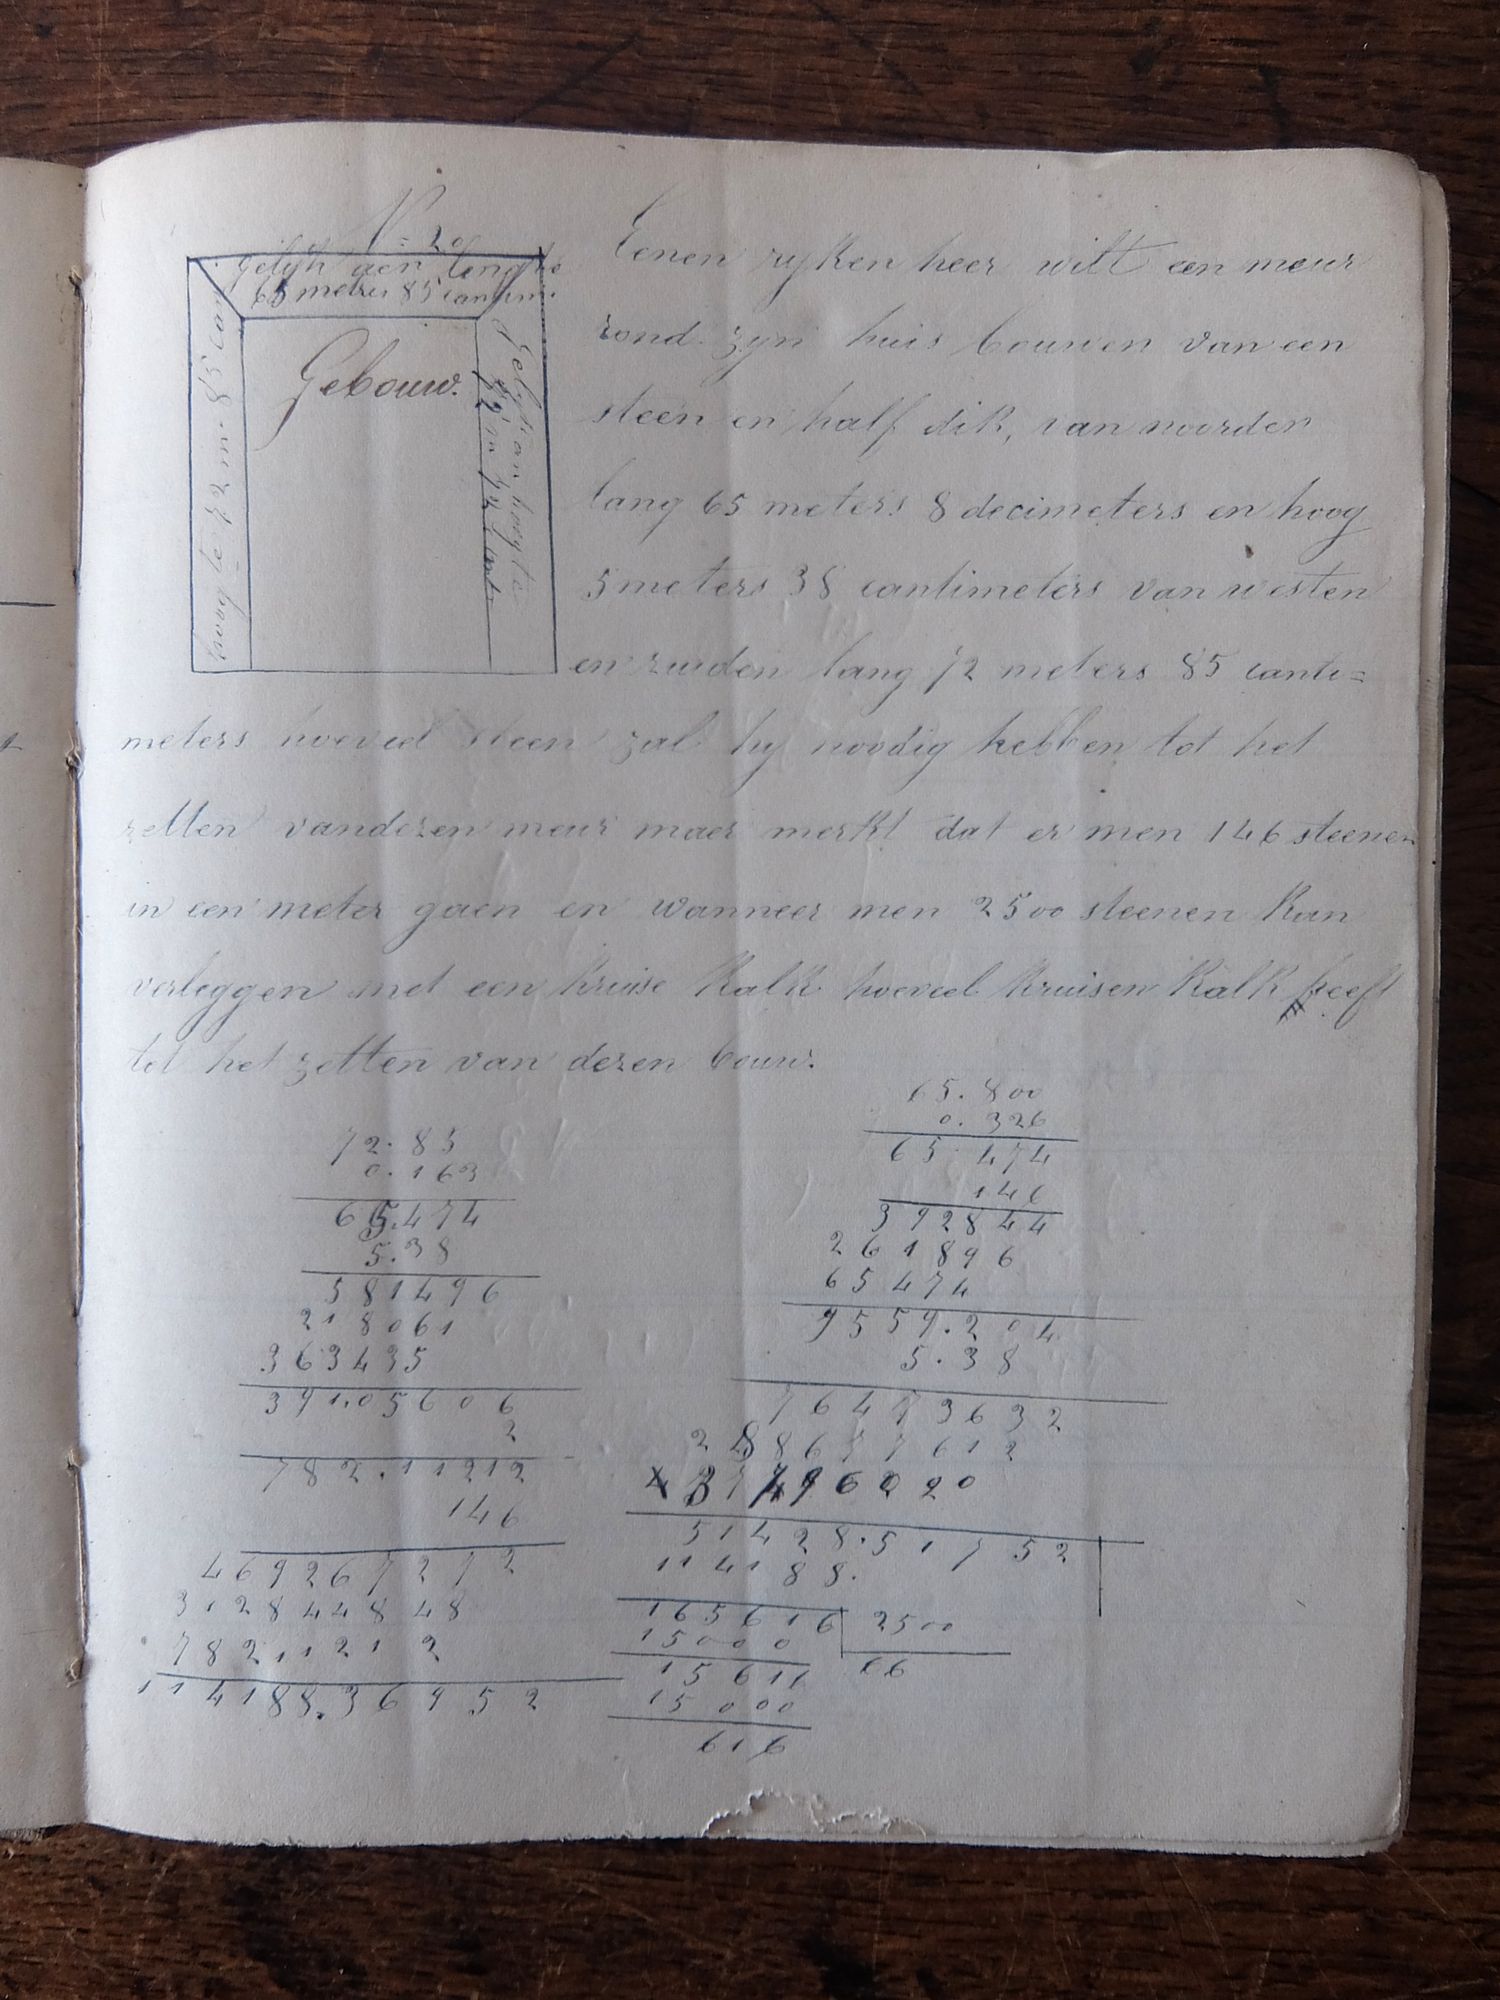 N= 20
gelijk aen lengte
65 metres 85 cantim.
hoogte 72 m. 85 can
Gebouw.
Gelyk aan hoogte
72 m
Eenen ryken heer wilt een meur
rond zyn huis bouwen van een
steen en half dik, van noorden
lang 65 meters 8 decimeters en hoog
5 meters 38 cantimeters van westen
en zuiden lang 72 meters 85 canti=
meters hoeveel steen zal hy noodig hebben tot het
zetten van dezen meur maer merkt dat er men 146 steenen
in een meter gaen en wanneer men 2500 steenen kan
verleggen met een kruise kalk hoeveel kruisen kalk heeft
tot het zetten van dezen bouw.
72.85
0.163
65.474
5.38
581496
218061
363435
391.05606
2
782.11212
146
469267272
312844848
78211212
114188.36952
65.800
0.326
65.474
146
392844
261896
65474
9559.204
5.38
76473632
28677612
47796020
51428.51752
114188.
165616 2500
15000 66
15616
15000
616